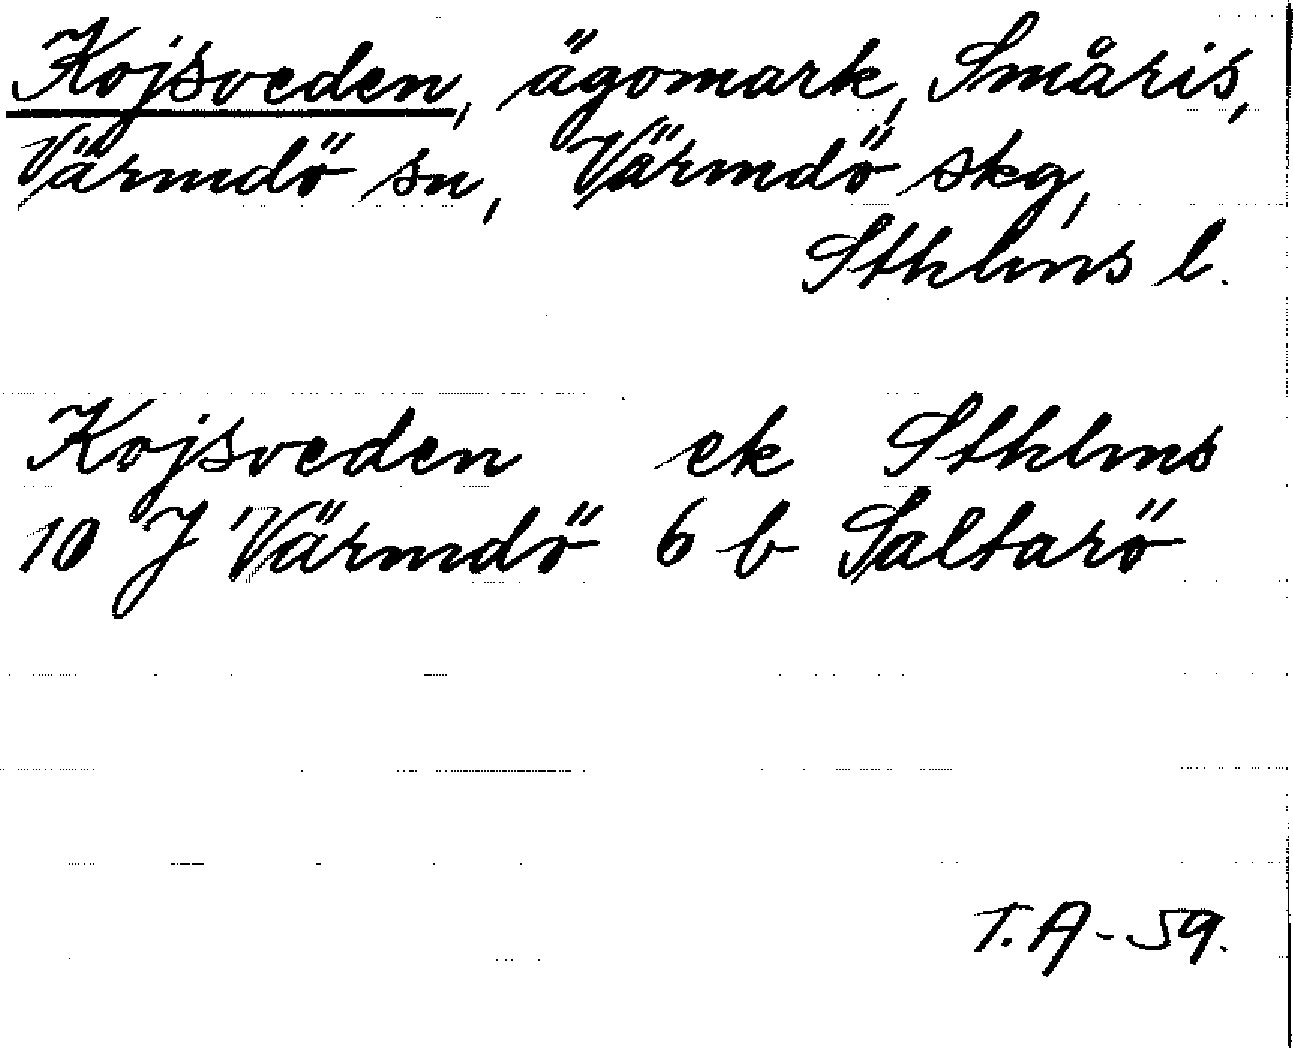 Kojsveden, ägomark, Småris,
Värmdö sn, Värmdö skg,
Sthlms l.
Kojsveden ek Sthlms
10 J Värmdö 6 b Saltarö
T. A - 59.